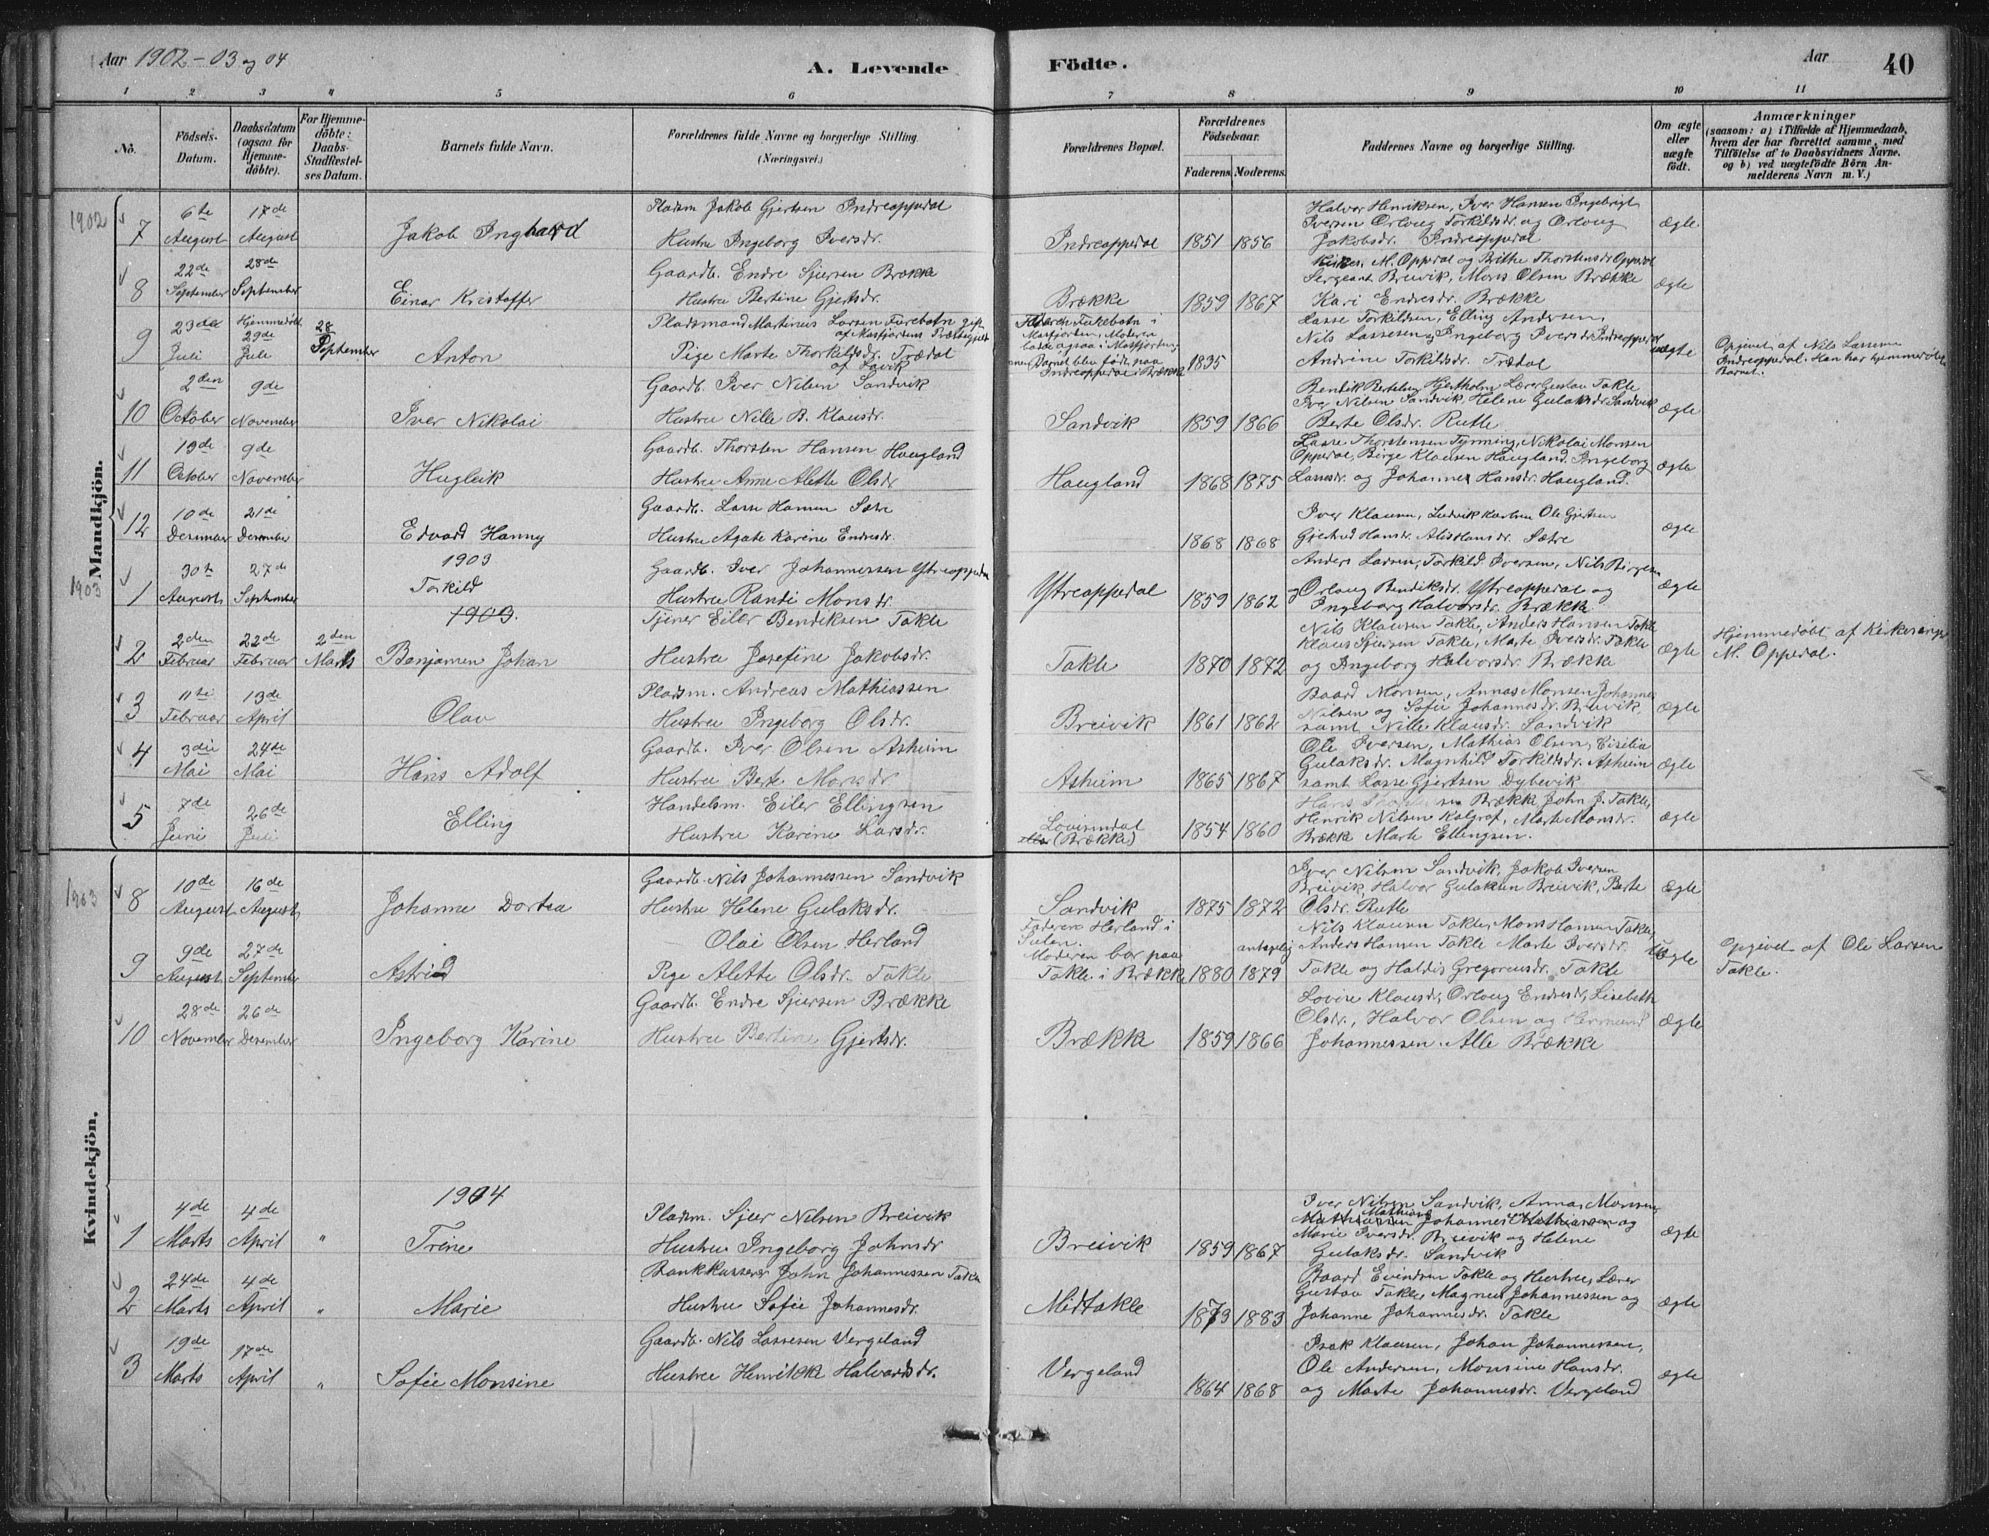 Aar 1902-03 og 04
A. Levende
Födte.
Aar
40
1 2 3 4 5 6 7 8 9 10 11
No.
Födsels-
Datum.
Daabsdatum
(ogsaa for
Hjemme-
döbte).
For Hjemme-
döbte:
Daabs-
Stadfæstel-
ses Datum.
Barnets fulde Navn.
Forældrenes fulde Navne og borgerlige Stilling.
(Næringsvei.)
Forældrenes Bopæl.
Forældrenes
Födselsaar.
Faderens. Moderens.
Faddernes Navne og borgerlige Stilling.
Om ægte
eller
uægte
födt.
Anmærkninger
(saasom: a) i Tilfælde af Hjemmedaab,
hvem der har forrettet samme, med
Tilföielse af to Daabsvidners Navne,
og b) ved uægtefödte Börn An-
melderens Navn m. V.)
Mandkjön.
1902
7
6te
August
17de
August
Jakob Ingvard
Pladsm. Jakob Gjertsen Indreoppedal
Hustru Ingeborg Iversdr.
Indreoppedal
1851 1856
Halvor Henriksen, Iver Hansen Ingebrigt
Iversen Orloug Torkildsdr. og Orloug
Jakobsdr. Indreoppedal
ægte
8
22de
September
28de
September
Einar Kristoffer
Gaardb. Endre Sjursen Brække
Hustru Bertine Gjertsdr.
Brække
1859 1867
M. Oppedal og Brithe Thorstensdr. Oppedal
Sergeant Breivik, Mons Olsen Brække
Kari Endresdr. Brække
ægte
9
23de
Juli
Hjemmedöbt
29de
Juli
28
September
Anton
Pladsmand Martinus Larsen
Pige Marte Thorkildsdr. Trædal
af Lavik
Indreoppedal i Brække
1835
Lasse Torkildsen, Elling Andersen,
Nils Lassesen, Ingeborg Iversdr. Indreoppedal
Andrine Torkildsdr. Trædal
uægte
Opgivet af Nils Lassesen
Indreoppedal. Han har hjemmedöbt
Barnet.
10
2den
October
9de
November
Iver Nikolai
Gaardb. Iver Nilsen Sandvik
Hustru Nille B. Klausdr.
Sandvik
1859 1866
Bendik Bertelsen Hjertholm Lærer Gustav Takle
Iver Nilsen Sandvik, Helene Gulaksdr. Sandvik
Berte Olsdr. Rutle
ægte
11
19de
October
9de
November
Hugleik
Gaardb. Thorsten Hansen Haugland
Hustru Anne Alette Olsdr.
Haugland
1868 1875
Lasse Thorstensen Tynning, Nikolai Monsen
Oppedal, Birge Klausen Haugland, Ingeborg
Lassesdr. og Johanne Hansdr. Haugland.
ægte
12
10de
Desember
21de
Desember
Edvard Hanny
Gaardb. Lasse Hansen Sætre
Hustru Agate Karine Endresdr.
1868 1868
Iver Klausen, Ludvik Karlsen Ole Gjertsen
Gjertrud Hansdr. Alis Hansdr. Sætre
ægte
1903
1903
1
30te
August
27de
September
Torkild
Gaardb. Iver Johannessen Ytreoppedal
Hustru Randi Monsdr.
Ytreoppedal
1859 1862
Anders Larsen, Torkild Iversen, Nils Birgesen
og Orloug Bendiksdr. Ytreoppedal og
Ingeborg Halvorsdr. Brække
ægte
1903.
2
2den
Februar
22de
Februar
2den
Marts
Benjamen Johan
Tjener Eiler Bendiksen Takle
Hustru Josefine Jakobsdr.
Takle
1870 1872
Nils Klausen Takle, Anders Hansen Takle
Klaus Sjursen Takle, Marte Iversdr. Takle
og Ingeborg Halvorsdr. Brække
ægte
Hjemmedöbt af Kirkesanger
M. Oppedal.
3
11te
Februar
13de
April
Olav
Pladsm. Andreas Mathiassen
Hustru Ingeborg Olsdr.
Breivik
1861 1862
Baard Monsen, Annas Monsen Johannes
Nilsen og Sofie Johannesdr. Breivik
samt Nille Klausdr. Sandvik
ægte
4
3die
Mai
24de
Mai
Hans Adolf
Gaardb. Iver Olsen Asheim
Hustru Berte Monsdr.
Asheim
1865 1867
Ole Iversen, Mathias Olsen, Cisilia
Gulaksdr. Magnhild Torkildsdr. Asheim
samt Lasse Gjertsen Dybevik
ægte
5
7de
Juni
26de
Juli
Elling
Handelsm. Eiler Ellingsen
Hustru Karine Larsdr.
Lovisendal
(Brække)
1854 1860
Brække John J. Takle,
Henrik Nilsen Kalgraf, Marte Monsdr.
Brække Marte Ellingsen.
ægte
Kvindekjön.
1903
8
10de
August
16de
August
Johanne Dortea
Gaardb. Nils Johannessen Sandvik
Hustru Helene Gulaksdr.
Sandvik
1875 1872
Iver Nilsen Sandvik, Jakob Iversen
Breivik, Halvor Gulaksen Breivik, Berte
Olsdr. Rutle
ægte
9
9de
August
27de
September
Astrid
Olai Olsen Herland
Pige Alette Olsdr. Takle
Faderen Herland i
Sulen.
Moderen bor paa
Takle i Brække
1880
antagelig
1879
Nils Klausen Takle, Mons Hansen Takle,
Anders Hansen Takle Marte Iversdr.
Takle og Haldis Gregoriusdr. Takle
uægte
Opgivet af Ole Larsen
Takle.
10
28de
November
26de
Desember
Ingeborg Karine
Gaardb. Endre Sjursen Brække
Hustru Bertine Gjertsdr.
Brække
1859 1866
Lovise Klausdr, Orloug Endresdr, Lisebeth
Olsdr., Halvor Olsen og Hermund
Johannessen. Alle Brække
ægte
1904
1
4de
Marts
4de
April
"
Trine
Pladsm. Sjur Nilsen Breivik
Hustru Ingeborg Johnsdr
Breivik
1859 1867
Iver Nilsen Sandvik, Annas Monsen,
Mathias
Johannes Mathiassen og
Marie Iversdr. Breivik og Helene
Gulaksdr. Sandvik
ægte
2
24de
Marts
4de
April
"
Marie
Bankkasserer John Johannessen Takle
Hustru Sofie Johannesdr.
Midtakle
1879 1883
Baard Eivindsen Takle og Hustru, Lærer
Gustav Takle, Magnus Johannessen og
Johanne Johannesdr. Takle
ægte
3
19de
Marts
17de
April
"
Sofie Monsine
Gaardb. Nils Lassesen Vergeland
Hustru Henrikke Halvardsdr.
Vergeland
1864 1868
Isak Klausen, Johan Johannessen,
Ole Andersen, Monsine Hansdr.
og Marte Johannesdr. Vergeland
ægte